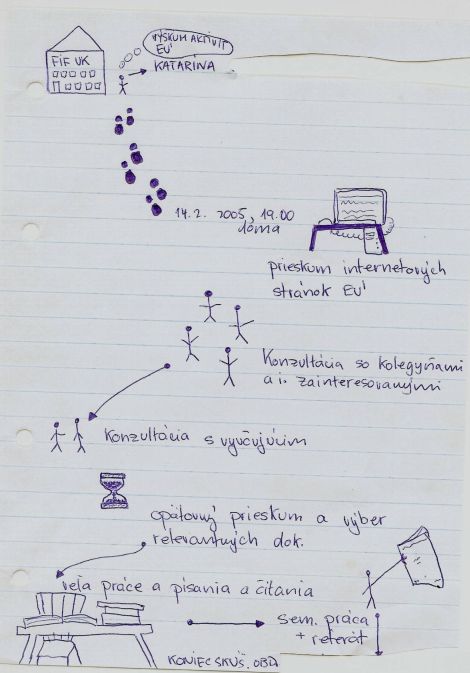 VÝSKUM AKTIVÍT
EÚ
FiF UK
KATARINA
14.2. 2005, 19.00
doma
prieskum internetových
stránok EÚ
Konzultácia so kolegyňami
a i. zainteresovanými
Konzultácia s vyučujúcim
opätovný prieskum a výber
relevantných dok.
veľa práce a písania a čítania
sem. práca
+ referát
KONIEC SKÚŠ. OBD.